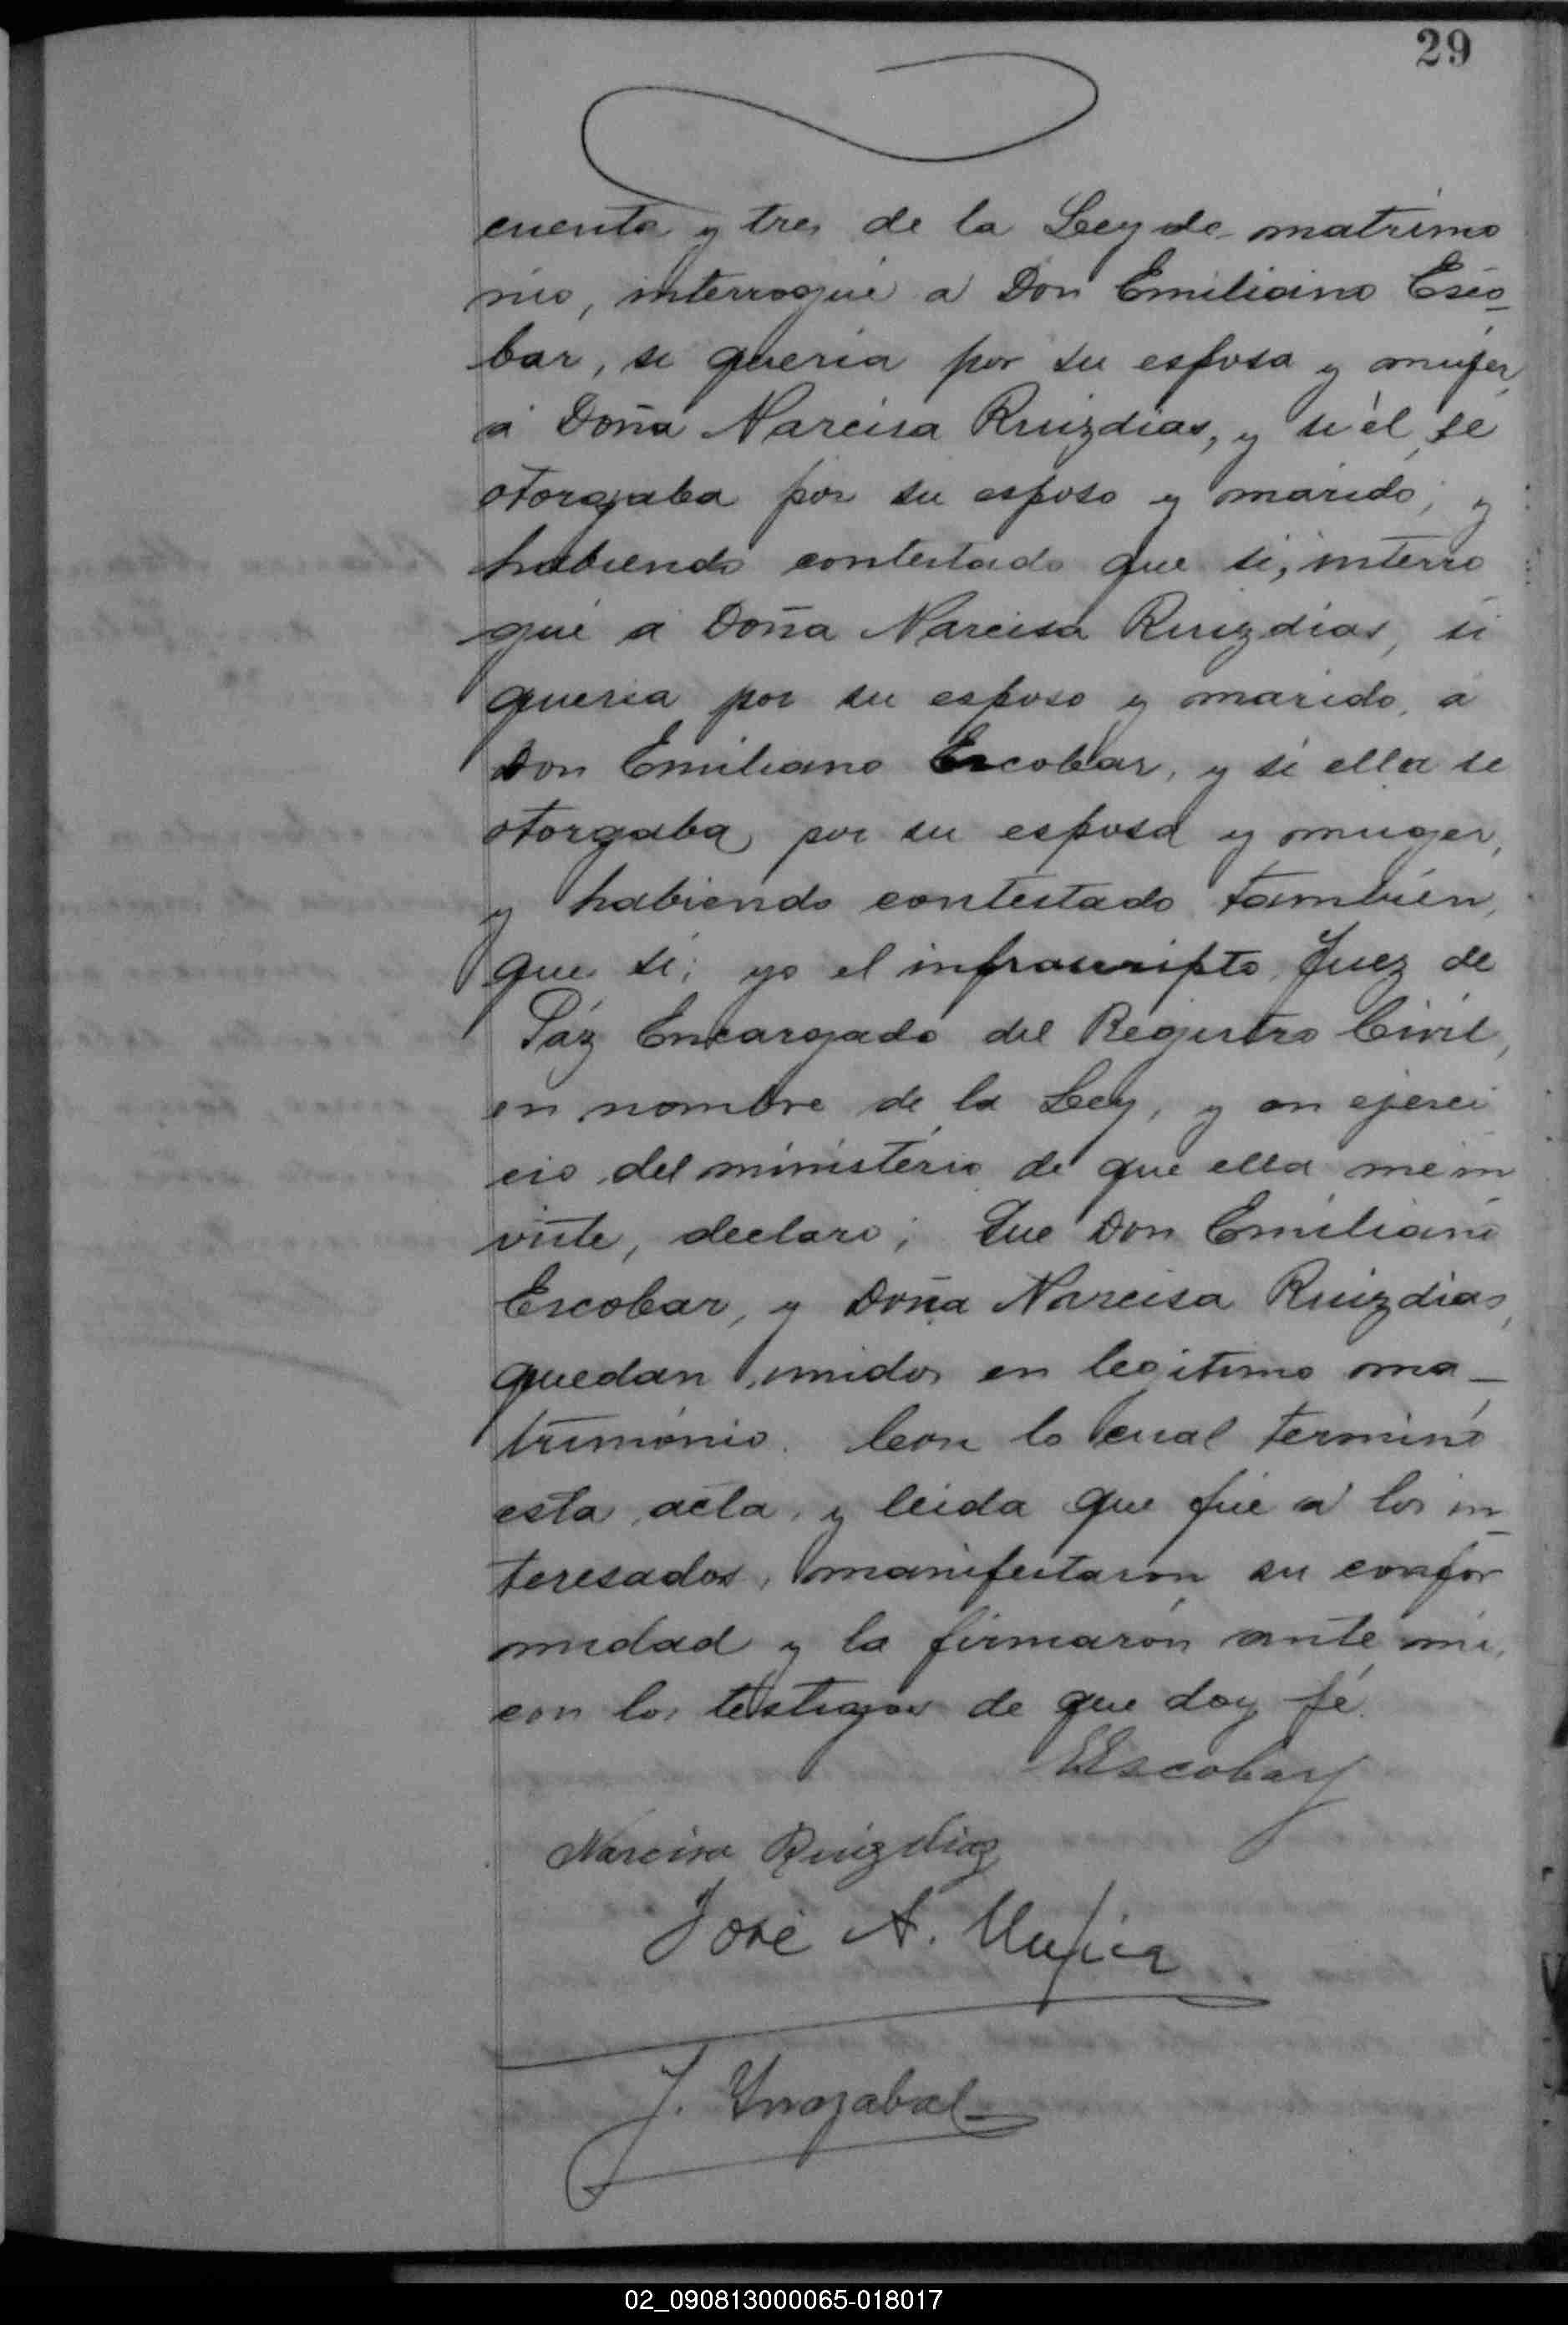 29
cuenta y tres de la Ley de matrimo
nio, interrogué á Don Emiliano Esco_
bar, si queria por su esposa y mujer,
á Doña Narcisa Ruizdias, y si él, se
otorgaba por su esposo y marido; y
habiendo contestado que si, interro
gué á Doña Narcisa Ruizdias, si
queria por su esposo y marido, á
Don Emiliano Escobar, y si ella se
otorgaba, por su esposa y muger,
y habiendo contestado también,
que si; yo el infrascripto, Juez de
Páz Encargado del Registro Civil,
en nombre de la Ley, y en ejerci
cio del ministerio de que ella me in
viste, declaro; Que Don Emiliano
Escobar, y Doña Narcisa Ruizdias,
quedan unidos en legitimo ma_
trimónio. Con lo cual terminó
esta acta, y leida que fué a los in_
teresados, manifestaron su confor
midad y la firmarón ante mi,
con los testigos de que doy fé.
EEscobar
Narcisa Ruizdiaz
José A. Mujica
J. Ynozabal
02_090813000065-018017